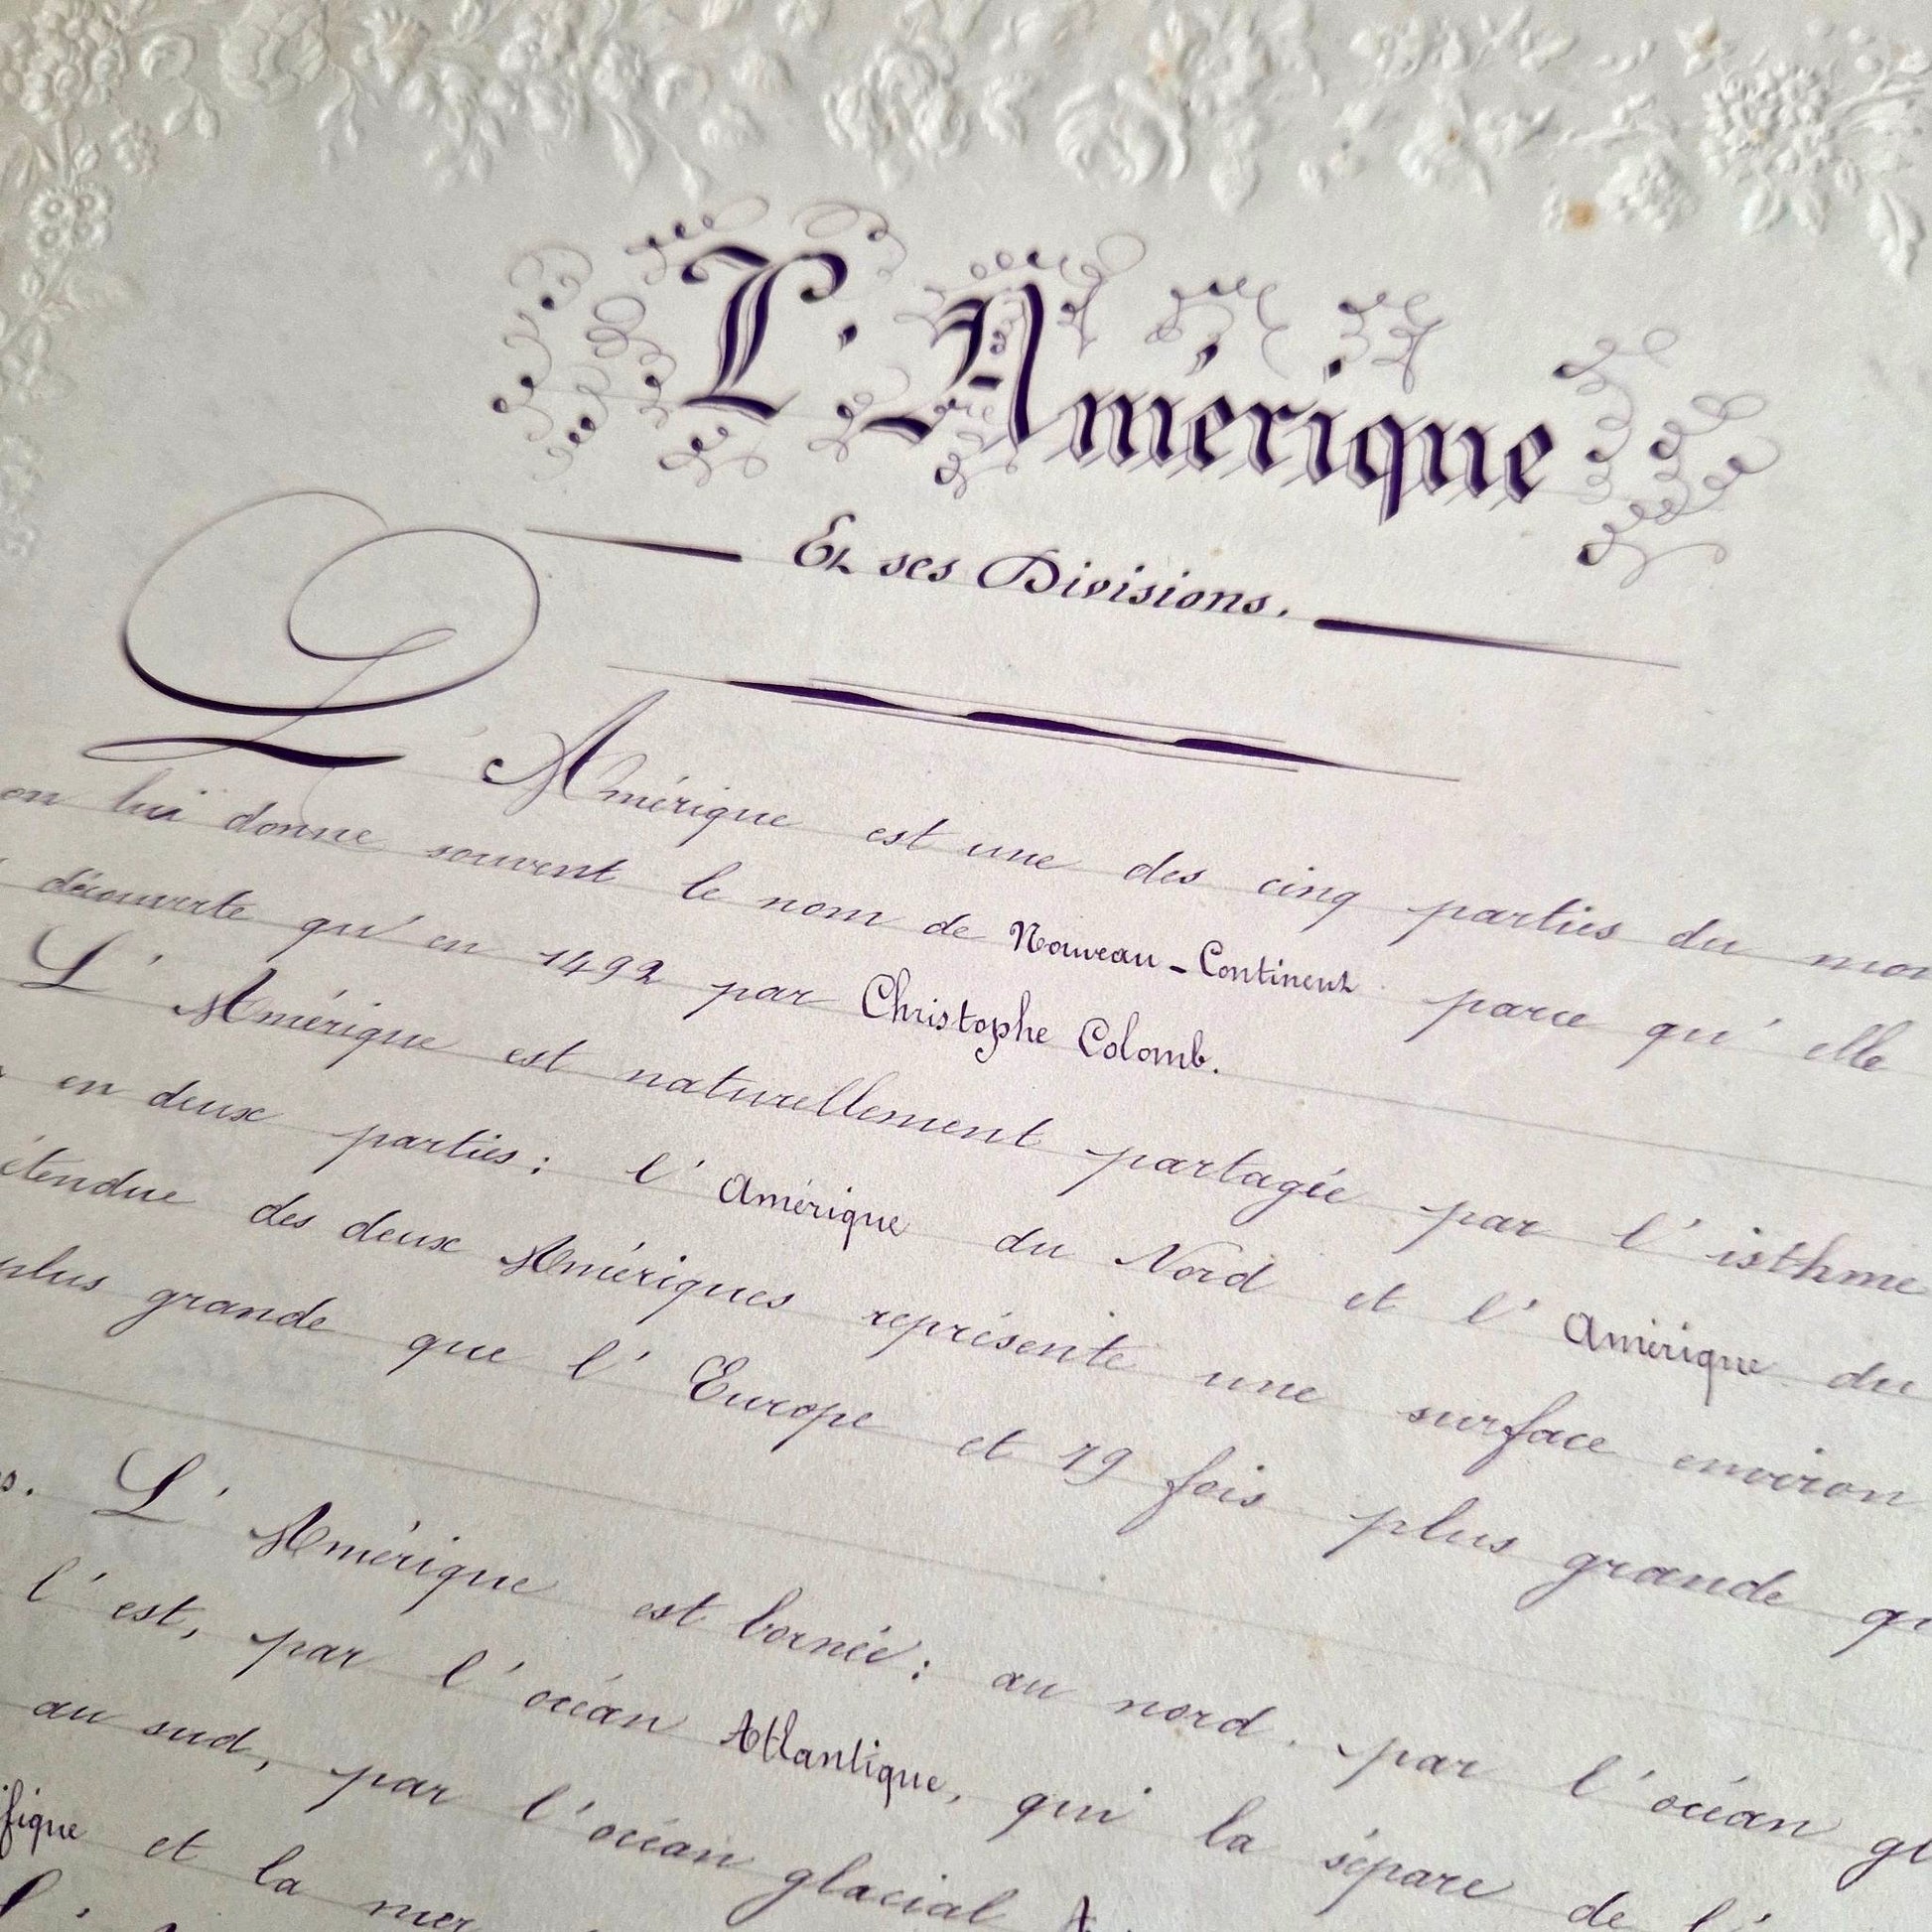 L'Amérique
Et ses Divisions.
L'Amérique est une des cinq parties du mon
on lui donne souvent le nom de Nouveau-Continent parce qu'elle
découverte qu'en 1492 par Christophe Colomb.
L'Amérique est naturellement partagée par l'isthme
en deux parties: l'Amérique du Nord et l'Amérique du
étendue des deux Amériques représente une surface environ
plus grande que l'Europe et 19 fois plus grande qu
s. L'Amérique est bornée: au nord, par l'océan gl
l'est, par l'océan Atlantique, qui la sépare de l'
au sud, par l'océan glacial A
ifique et la mer